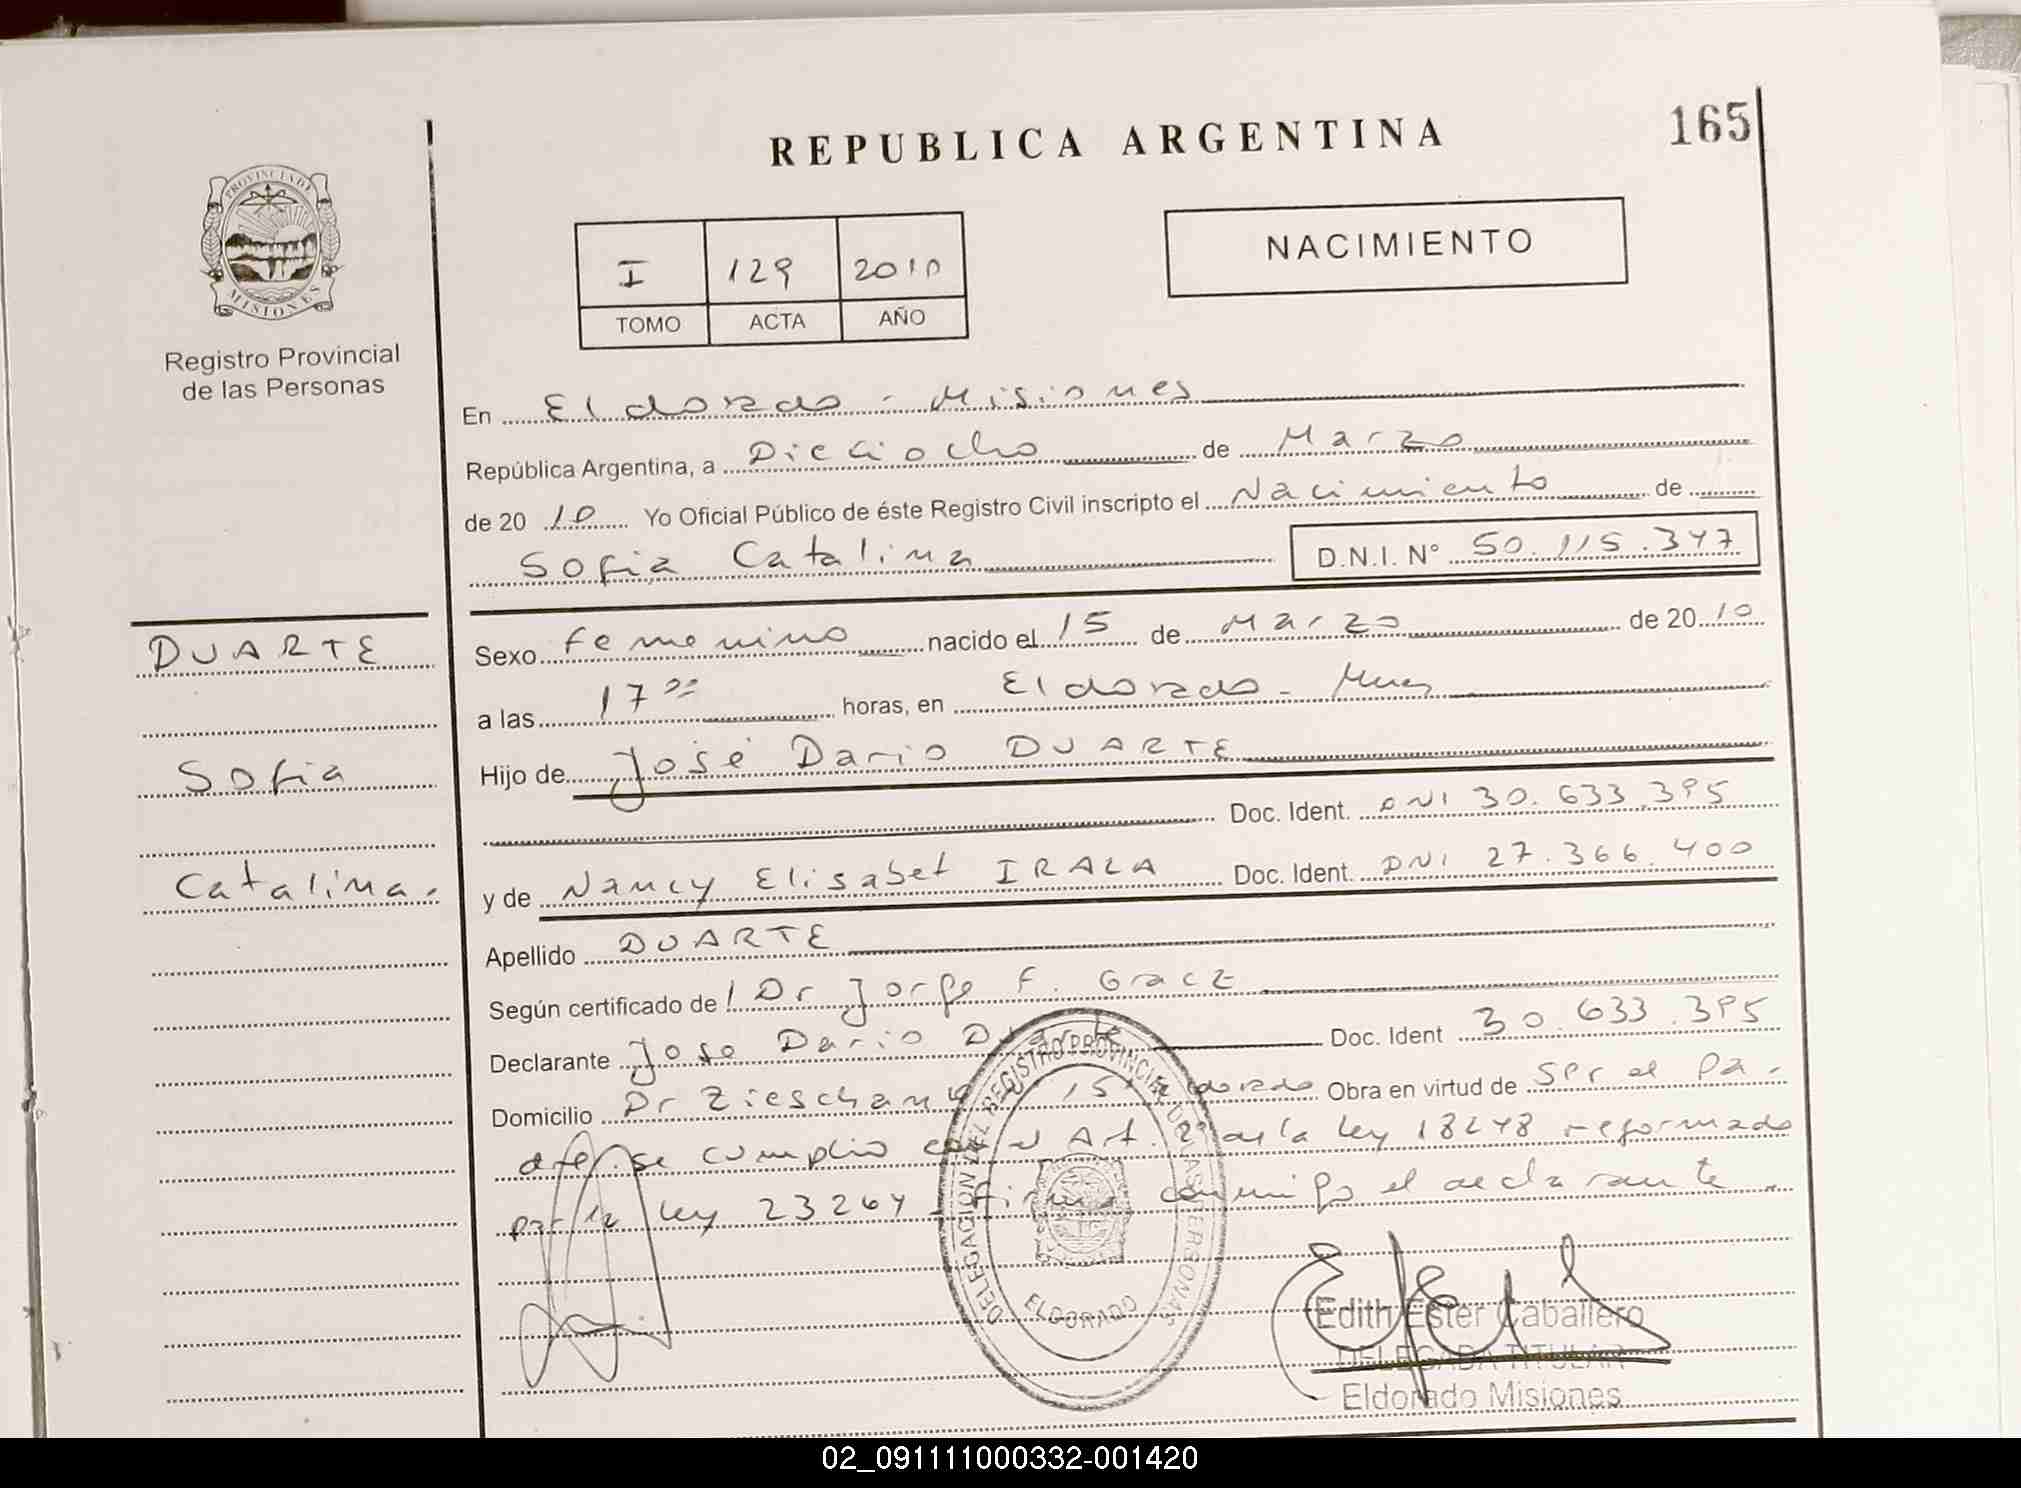 REPUBLICA ARGENTINA
165
PROVINCIA DE
MISIONES
Registro Provincial
de las Personas
I 129 2010
TOMO ACTA AÑO
NACIMIENTO
En Eldorado - Misiones
República Argentina, a Dieciocho de Marzo
de 20 10 Yo Oficial Público de éste Registro Civil inscripto el Nacimiento de
Sofia Catalina D.N.I. N° 50.115.347
DUARTE
Sofia
Catalina.
Sexo Femenino nacido el 15 de Marzo de 20 10
a las 17 00 horas, en Eldorado - Mnes
Hijo de José Dario DUARTE
Doc. Ident. DNI 30.633.395
y de Nancy Elisabet IRALA Doc. Ident. DNI 27.366.400
Apellido DUARTE
Según certificado de Dr Jorge F. Gracz
Declarante Jose Dario Duarte Doc. Ident 30.633.395
Domicilio Dr Zieschank 15 Eldorado Obra en virtud de ser el pa-
dre. se cumplio con el Art. 2º de la ley 18248 reformado
por la ley 23264 - Firma conmigo el declarante.
DELEGACION DEL REGISTRO PROVINCIAL DE LAS PERSONAS
ELDORADO
Edith Ester Caballero
DELEGADA TITULAR
Eldorado Misiones
02_091111000332-001420